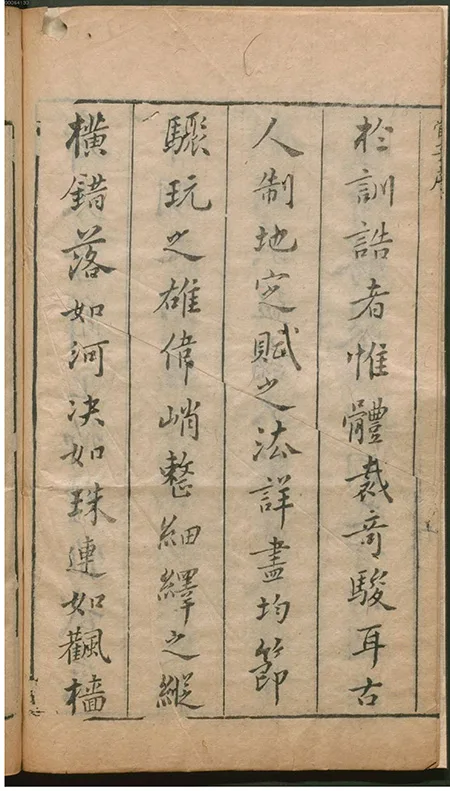 於訓誥者惟體裁奇駿耳古
人制地定賦之法詳盡均節
驟玩之雄偉峭整細繹之縱
橫錯落如河決如珠連如飄檣